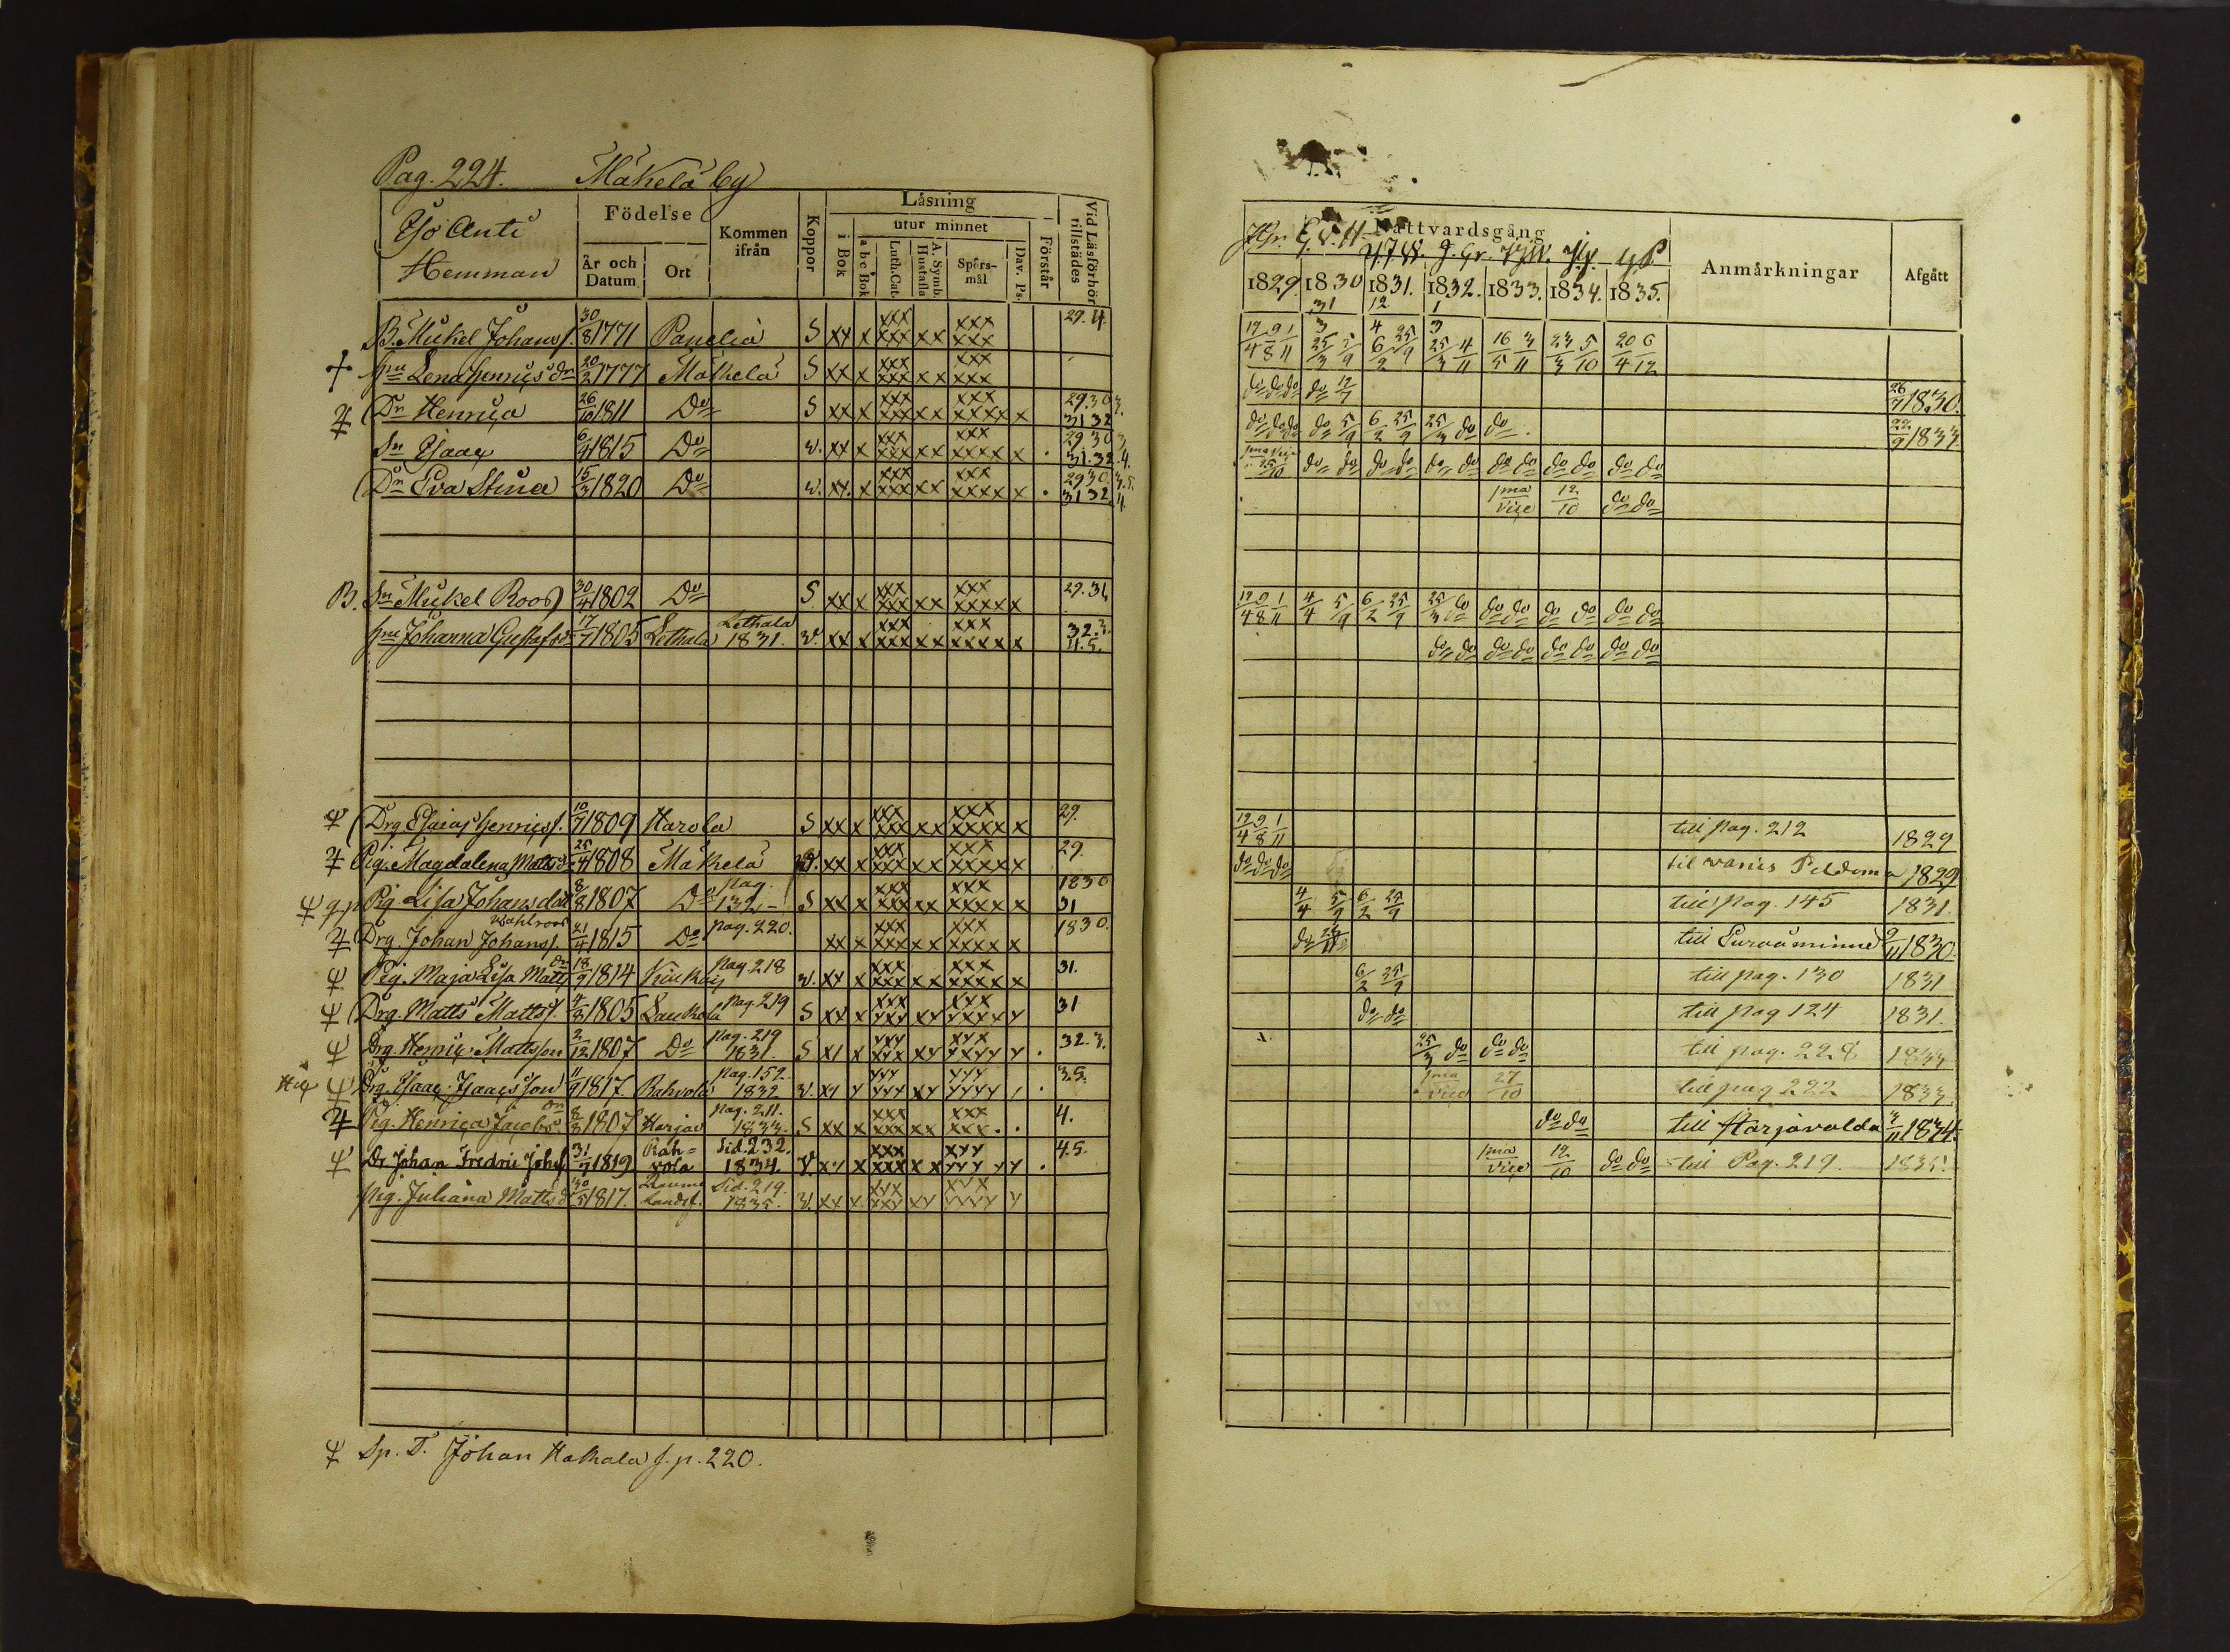 Pag. 224. Mäkelä by
Födelse Kommen ifrån Koppor Läsning Vid Läsförhör tillstädes
Anti
Hemman
År och Datum Ort i Bok utur minnet abcBok Luth.Cat. A. Symb. Hustafla Spörs-mål Dav. Ps. Förstår
B. Mickel Johanss. 30/8 1771 Panelia S xx x xxx xxx xx xxx xxx 29.
Lena Henrics dr 20/2 1777 Mäkelä S xx x xxx xxx xx xxx xxx
Dr Henrica 26/10 1811 Do S xx x xxx xxx xx xxx xxxxx x 29.30 3. 31 32
Sn Isaac 1815 Do v. xx x xxx xxx xx xxx xxxx x . 29 30 3 31.32. 4.
Dr Eva Stina 15/3 1820 Do v. xx. x xxx xxx xx xxx xxxx x . 29 30. 3.5. 31 32 4.
B. Sn Mickel Roos 30/4 1802 Do S. xx x xxx xxx xx xxx xxxx x 29.31
Johanna Gustafsdr 17/7 1805 Lethala Lethala 1831. v. xx x xxx xxx xx xxx xxxx x 32.3. 4.5.
Drg Esaias Henricss. 10/7 1809 Harola S xx x xxx xxx xx xxx xxxx x 29.
Pig. Magdalena Mattsd. 25/4 1808 Mäkelä v. xx x xxx xxx xx xxx xxxx x 29.
Pig Lisa Johansdotter 8/8 1807 Do pag. 132 S xx x xxx xxx xx xxx xxxx x 1830 31
Wahlroos
Drg. Johan Johanss. 21/4 1815 Do pag. 220. xx x xxx xxx xx xxx xxxx x 1830.
Pig. Maja Lisa Matts dr 18/9 1814 pag. 218 v. xx x xxx xxx xx xxx xxxx x 31.
Drg. Matts Mattss. 4/8 1805 Laukola pag. 219 S xx x xxx xxx xx xxx xxxx x 31
Drg. Henric Mattsson 2/12 1807 Do pag. 219 1831. S x1 x xxx xxx xx xxx xxxx x . 32.3.
Drg. Isaac Isaacsson 11/9 1817. Rahvola pag. 152. 1832 v. xx x xxx xxx xx xxx xxxx . 3.5.
Pig. Henrica Jacobs dr 8/3 1807 Harjav pag. 211. 1833. S xx x xxx xxx xx xxx xxx . . 4.
Dr. Johan Fredric Johss. 31/7 1819 Rah=vola Sid. 232. 1834. v. xx x xxx xxxx x x xxx xxx xx . 4.5.
Pig. Juliana Mattsd. 30/5 1817. Raumo Landsf. Sid. 219. 1835. v. xx x xxx xxx xx xxx xxxx x
Sp. T. Johan Hakala s. p. 220.
Nattvardsgång Anmärkningar Afgått
1829. 1830 1831. 1832. 1833. 1834. 1835.
31 12 1
3 4 3
19/4 9/8 1/11 25/3 5/9 6/2 25/9 25/3 4/11 16/5 3/11 23/3 5/10 20/4 6/12
do do do do 12/7 26/7 1830.
do do do do 5/9 6/2 25/9 25/3 do do . 22/9 1833.
1ma vice 25/10 do do do do do do do do do do do do
1ma vice 12/10 do do
19/4 9/8 1/11 4/4 5/9 6/2 25/9 25/3 do do do do do do do
do do do do do do do do
19/4 9/8 1/11 till pag. 212 1829
do do do til 1829
4/4 5/9 6/2 25/9 till pag. 145 1831.
do till Euraåminne 9/11 1830.
6/2 25/9 till pag. 130 1831
do do till pag 124 1831.
25/3 do do do till pag. 228 1833
1ma vice 27/10 till pag 222 1833.
do do till Harjavalda 3/11 1834.
1ma vice 12/10 do do till Pag. 219. 1835.